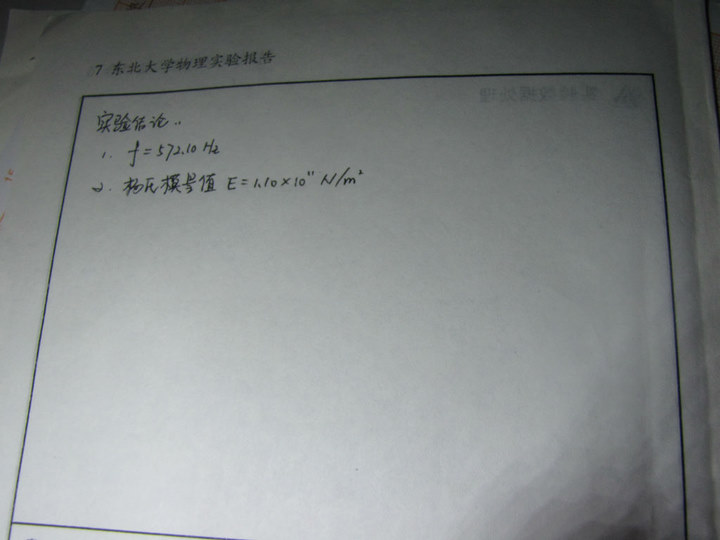 7 东北大学物理实验报告
实验结论:
1. f=572.10 Hz
2. 杨氏模量值 E=1.10×10¹¹ N/m²